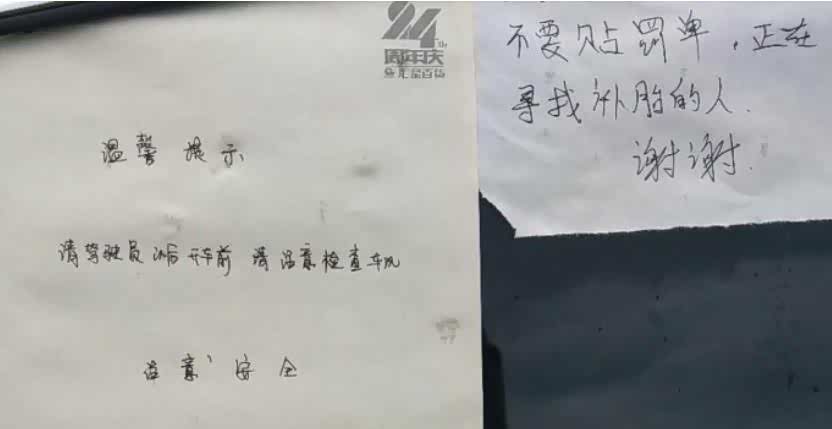 24th
周年庆
汇金百货
温馨提示
请驾驶员以后开车前 请注意检查车况
注意、安全
不要贴罚单，正在
寻找补胎的人.
谢谢.